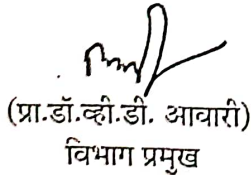 (प्रा.डॉ.व्ही.डी. आवारी)
विभाग प्रमुख